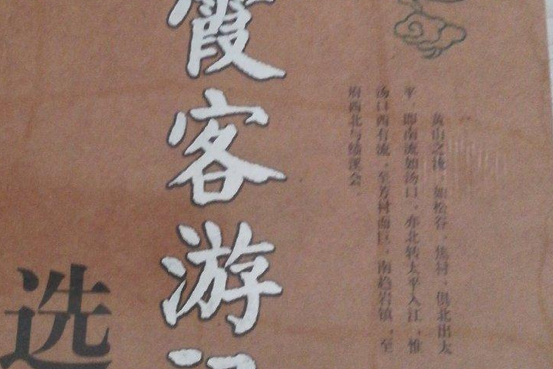 霞客游记
选
黄山之流，如松谷、焦村，俱北出太
平，即南流如汤口，亦北转太平入江；惟
汤口西有流，至芳村而巨，南趋岩镇，至
府西北与绩溪会。